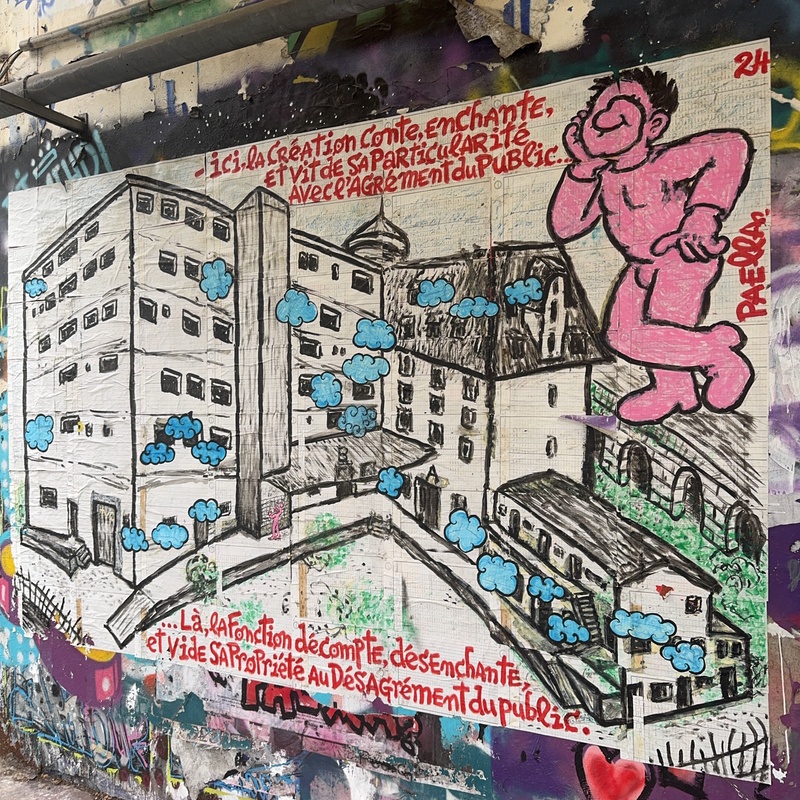 24
- ici, la Création Conte, enchante,
et vit de sa particularité
avec l'Agrément du public...
PAellA?
... Là, la Fonction décompte, désenchante,
et vide sa propriété au Désagrément du public.